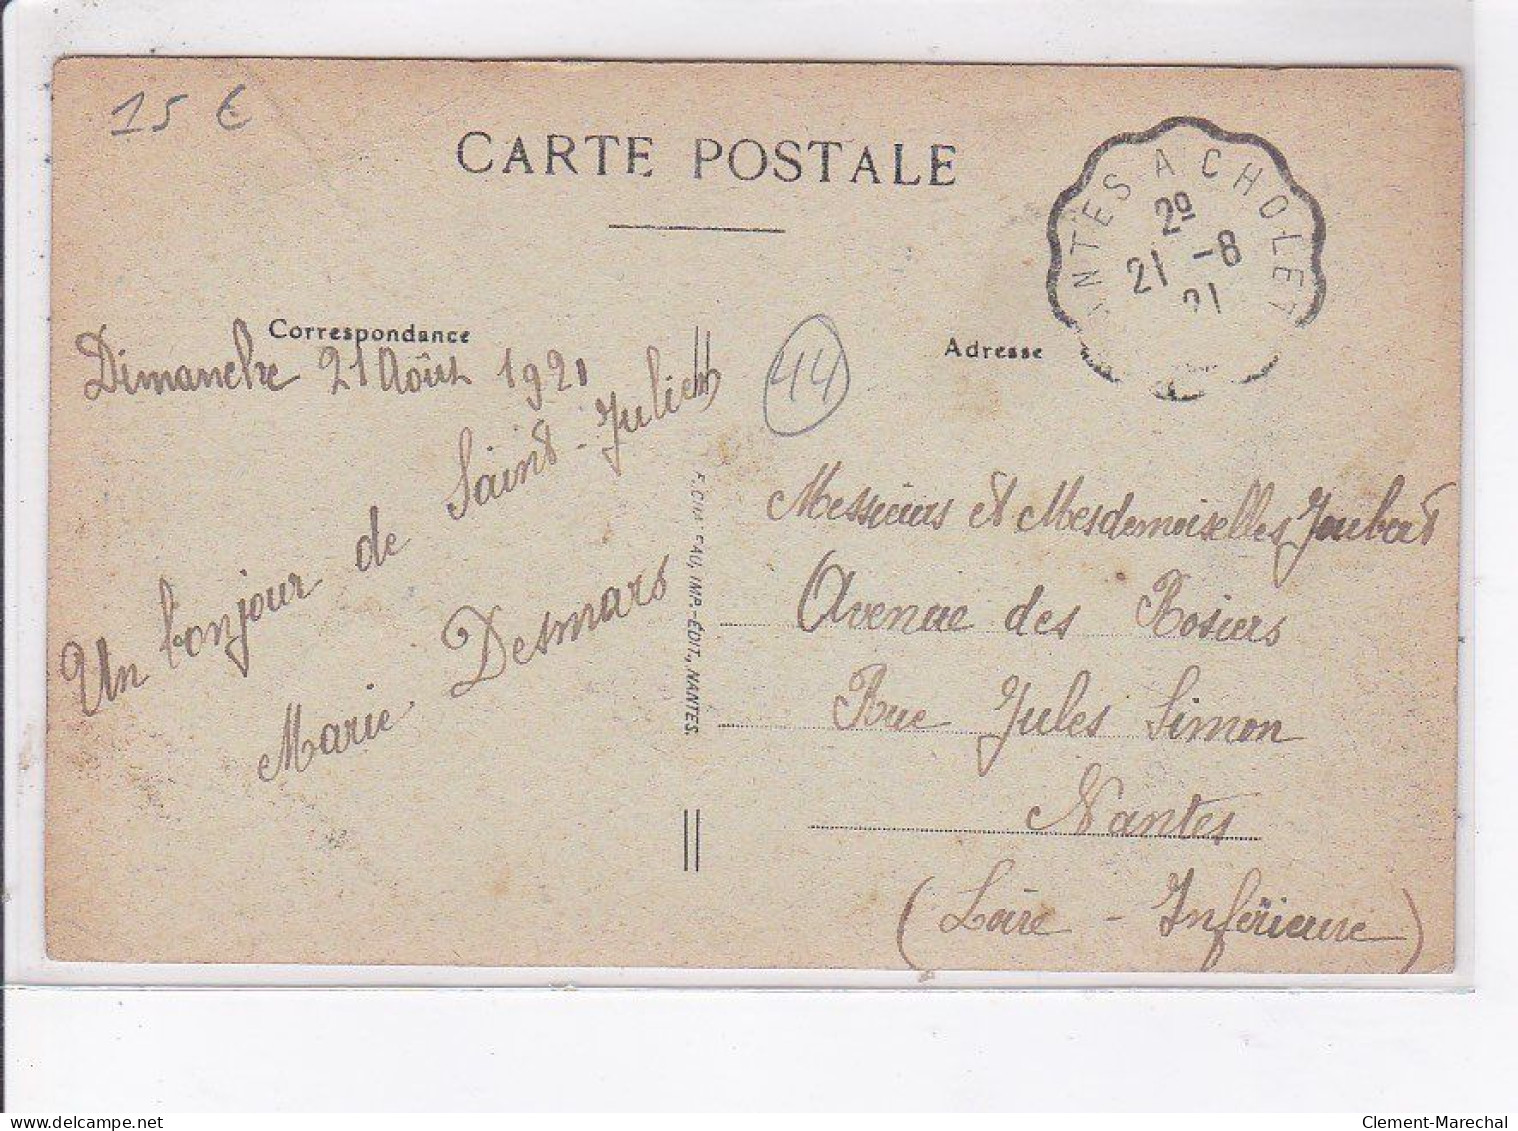 15 €
CARTE POSTALE
NTES A CHOLET
2º
21 -8
21
Correspondance
Dimanche 21 Août 1921
Un bonjour de Saint-Julien
Marie Desmars
EAU, IMP.-ÉDIT., NANTES.
44
Adresse
Messieurs et Mesdemoiselles Joubert
Avenue des Rosiers
Rue Jules Simon
Nantes
(Loire - Inférieure)
Clement-Marechal